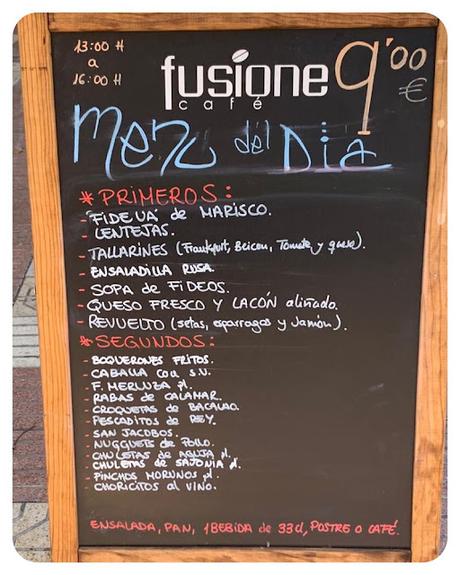 13:00 H
a
16:00 H
fusione
café
9'00
€
Menu del Dia
* PRIMEROS:
- FIDEUÁ de MARISCO.
- LENTEJAS.
- TALLARINES (Frankfurt, Beicon, Tomate y queso).
- ENSALADILLA RUSA.
- SOPA de FIDEOS.
- QUESO FRESCO Y LACÓN aliñado.
- REVUELTO (setas, esparragos y Jamón).
* SEGUNDOS:
- BOQUERONES FRITOS.
- CABALLA con S.V.
- F. MERLUZA pl.
- RABAS de CALAMAR.
- CROQUETAS de BACALAO.
- PESCADITOS de REY.
- SAN JACOBOS.
- NUGGUETS de POLLO.
- CHULETAS de AGUJA pl.
- CHULETAS de SAJONIA pl.
- PINCHOS MORUNOS pl.
- CHORICITOS al VINO.
ENSALADA, PAN, 1 BEBIDA de 33 cl, POSTRE O CAFÉ.